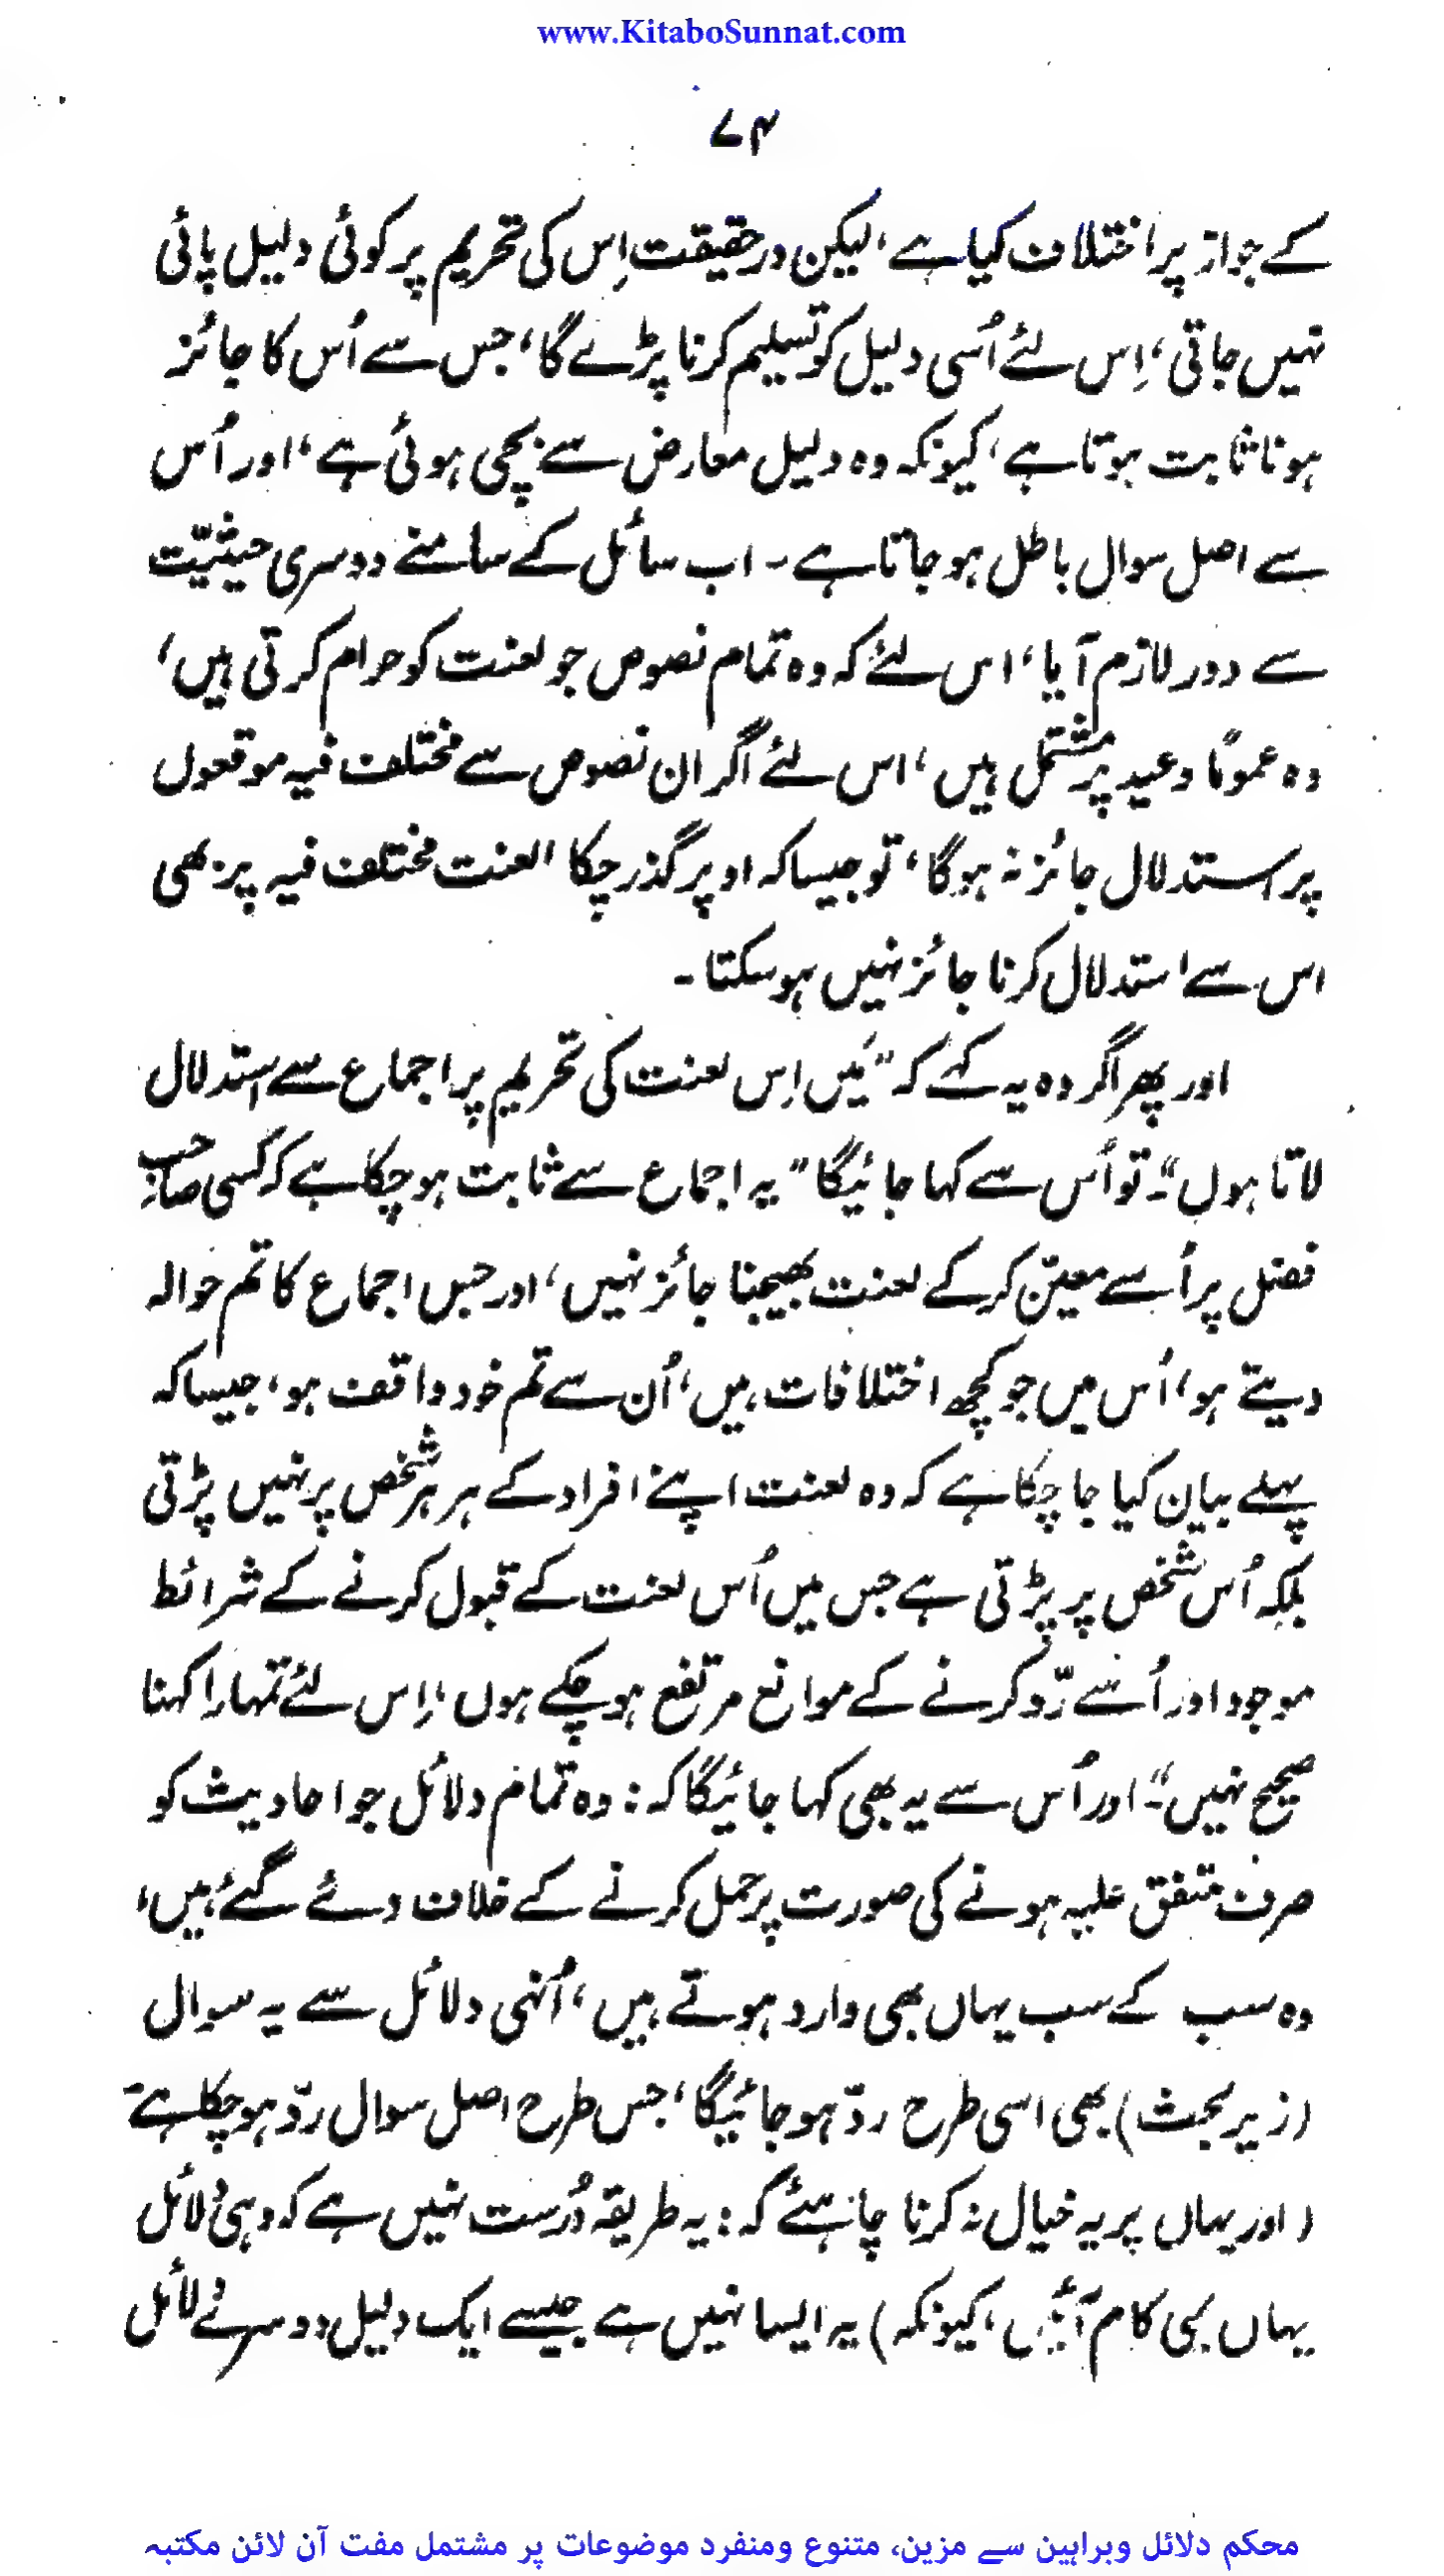 www.KitaboSunnat.com
۷۴
کے جواز پر اختلاف کیا ہے، لیکن درحقیقت اِس کی تحریم پر کوئی دلیل پائی
نہیں جاتی، اِس لئے اُسی دلیل کو تسلیم کرنا پڑے گا، جس سے اُس کا جائز
ہونا ثابت ہوتا ہے، کیونکہ وہ دلیل معارض سے بچی ہوئی ہے، اور اُس
سے اصل سوال باطل ہو جاتا ہے ۔ اب سائل کے سامنے دوسری حیثیّت
سے دور لازم آیا، اس لئے کہ وہ تمام نصوص جو لعنت کو حرام کرتی ہیں،
وہ عمومًا وعید پر مشتمل ہیں، اس لئے اگر ان نصوص سے مختلف فیہ موقعوں
پر استدلال جائز نہ ہوگا، تو جیسا کہ اوپر گذر چکا العنت مختلف فیہ پر بھی
اس سے استدلال کرنا جائز نہیں ہو سکتا ۔
اور پھر اگر وہ یہ کہے کہ "مَیں اِس لعنت کی تحریم پر اجماع سے استدلال
لاتا ہوں"۔ تو اُس سے کہا جائیگا "یہ اجماع سے ثابت ہو چکا ہے کہ کسی صاحبِ
فضل پر اُسے معیّن کر کے لعنت بھیجنا جائز نہیں، اور جس اجماع کا تم حوالہ
دیتے ہو، اُس میں جو کچھ اختلافات ہیں، اُن سے تم خود واقف ہو، جیسا کہ
پہلے بیان کیا جا چکا ہے کہ وہ لعنت اپنے افراد کے ہر ہر شخص پر نہیں پڑتی
بلکہ اُس شخص پر پڑتی ہے جس میں اُس لعنت کے قبول کرنے کے شرائط
موجود اور اُسے ردّ کرنے کے موانع مرتفع ہو چکے ہوں، اِس لئے تمہارا کہنا
صحیح نہیں"۔ اور اُس سے یہ بھی کہا جائیگا کہ : وہ تمام دلائل جو احادیث کو
صرف متفق علیہ ہونے کی صورت پر حمل کرنے کے خلاف دئے گئے ہیں،
وہ سب کے سب یہاں بھی وارد ہوتے ہیں، اُنہی دلائل سے یہ سوال
(زیر بحث) بھی اسی طرح ردّ ہو جائیگا، جس طرح اصل سوال ردّ ہو چکا ہے ۔
(اور یہاں پر یہ خیال نہ کرنا چاہئے کہ : یہ طریقہ دُرست نہیں ہے کہ وہی دلائل
یہاں بھی کام آئیں، کیونکہ) یہ ایسا نہیں ہے جیسے ایک دلیل دوسرے دلائل
محکم دلائل وبراہین سے مزین، متنوع ومنفرد موضوعات پر مشتمل مفت آن لائن مکتبہ